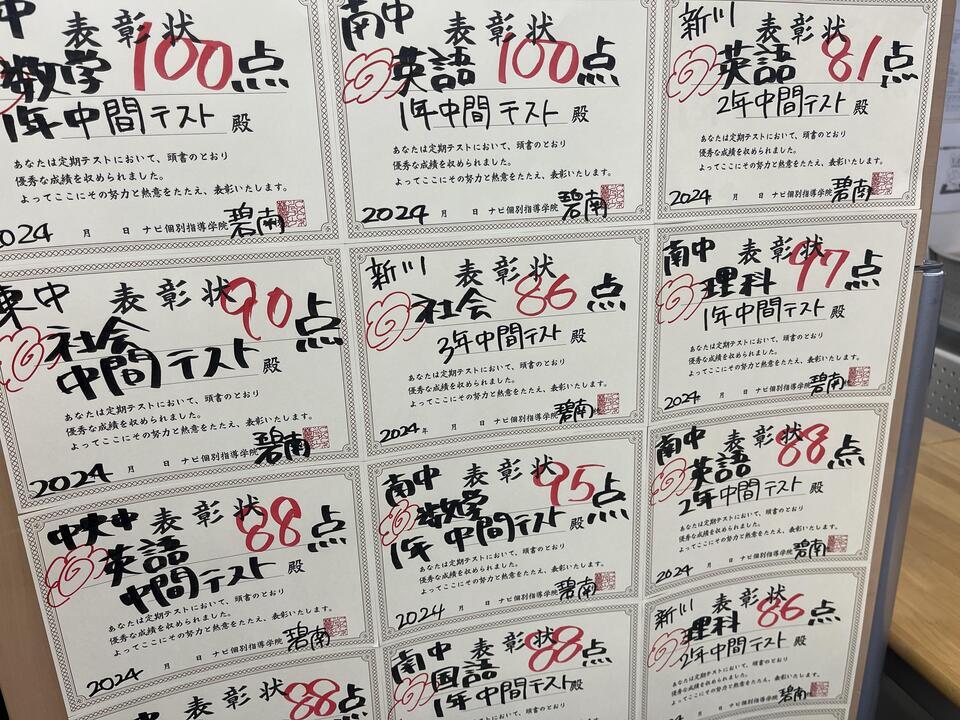 中
表彰状
数学 100点
1年中間テスト 殿
あなたは定期テストにおいて、頭書のとおり
優秀な成績を収められました。
よってここにその努力と熱意をたたえ、表彰いたします。
2024 月 日 ナビ個別指導学院 碧南
南中 表彰状
英語 100点
1年中間テスト 殿
あなたは定期テストにおいて、頭書のとおり
優秀な成績を収められました。
よってここにその努力と熱意をたたえ、表彰いたします。
2024 月 日 ナビ個別指導学院 碧南
新川 表彰状
英語 81点
2年中間テスト 殿
あなたは定期テストにおいて、頭書のとおり
優秀な成績を収められました。
よってここにその努力と熱意をたたえ、表彰いたします。
2024 月 日 ナビ個別指導学院 碧南
東中 表彰状
社会 90点
中間テスト 殿
あなたは定期テストにおいて、頭書のとおり
優秀な成績を収められました。
よってここにその努力と熱意をたたえ、表彰いたします。
2024 月 日 ナビ個別指導学院 碧南
新川 表彰状
社会 86点
3年中間テスト 殿
あなたは定期テストにおいて、頭書のとおり
優秀な成績を収められました。
よってここにその努力と熱意をたたえ、表彰いたします。
2024年 月 日 ナビ個別指導学院 碧南
南中 表彰状
理科 97点
1年中間テスト 殿
あなたは定期テストにおいて、頭書のとおり
優秀な成績を収められました。
よってここにその努力と熱意をたたえ、表彰いたします。
2024 月 日 ナビ個別指導学院 碧南
中央中 表彰状
英語 88点
中間テスト 殿
あなたは定期テストにおいて、頭書のとおり
優秀な成績を収められました。
よってここにその努力と熱意をたたえ、表彰いたします。
2024 月 日 ナビ個別指導学院 碧南
南中 表彰状
数学 95点
1年中間テスト 殿
あなたは定期テストにおいて、頭書のとおり
優秀な成績を収められました。
よってここにその努力と熱意をたたえ、表彰いたします。
2024 月 日 ナビ個別指導学院 碧南
南中 表彰状
英語 88点
2年中間テスト 殿
あなたは定期テストにおいて、頭書のとおり
優秀な成績を収められました。
よってここにその努力と熱意をたたえ、表彰いたします。
2024 月 日 ナビ個別指導学院 碧南
表彰状
88点
南中 表彰状
国語 88点
1年中間テスト 殿
あなたは定期テストにおいて、頭書のとおり
新川 表彰状
理科 86点
2年中間テスト 殿
あなたは定期テストにおいて、頭書のとおり
優秀な成績を収められました。
よってここにその努力と熱意をたたえ、表彰いたします。
月 日 ナビ個別指導学院 碧南